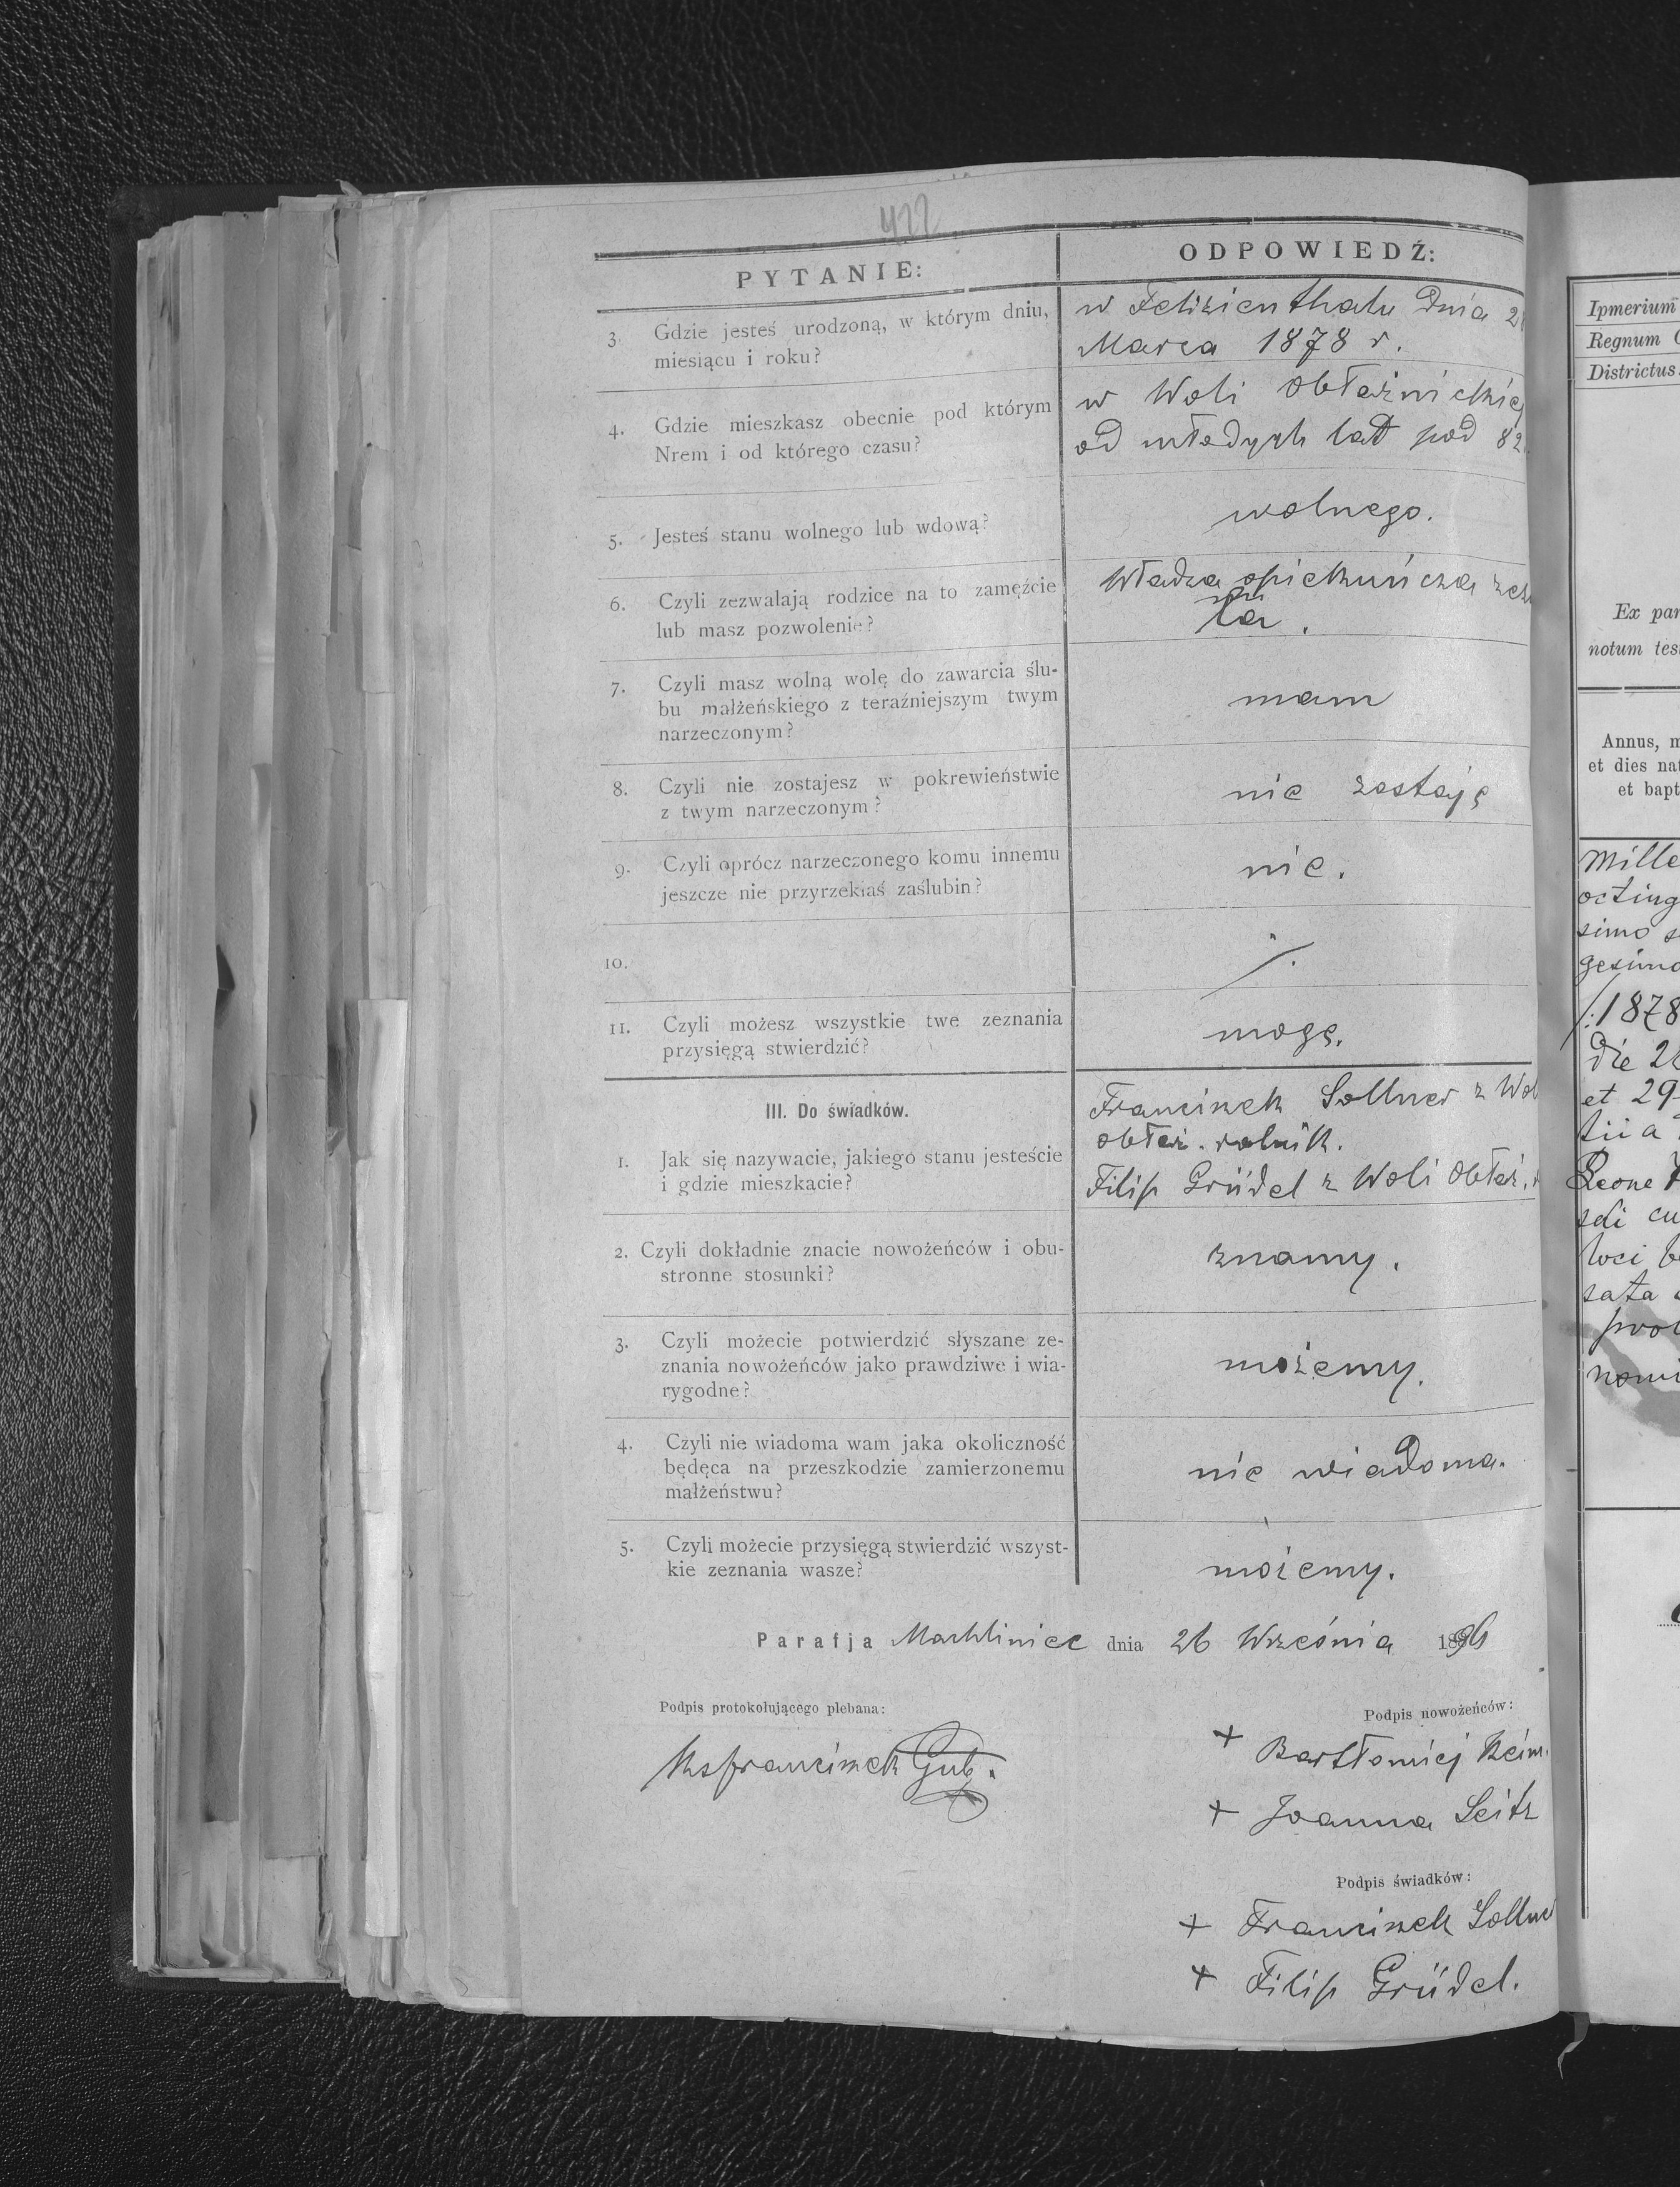 422
PYTANIE:
ODPOWIEDŹ:
3. Gdzie jesteś urodzoną, w którym dniu,
miesiącu i roku?
w Felizienthalu Dnia 2
Marca 1878 r.
4. Gdzie mieszkasz obecnie pod którym
Nrem i od którego czasu?
w Woli Obłaźnickiej
od młodych lat pod 82
5. Jesteś stanu wolnego lub wdową?
wolnego.
6. Czyli zezwalają rodzice na to zamęźcie
lub masz pozwolenie?
Władza opiekuńcza
la.
7. Czyli masz wolną wolę do zawarcia ślu-
bu małżeńskiego z teraźniejszym twym
narzeczonym?
mam
8. Czyli nie zostajesz w pokrewieństwie
z twym narzeczonym?
nie zostaję
9. Czyli oprócz narzeczonego komu innemu
jeszcze nie przyrzekłaś zaślubin?
nie.
10.
11. Czyli możesz wszystkie twe zeznania
przysięgą stwierdzić?
mogę.
III. Do świadków.
1. Jak się nazywacie, jakiego stanu jesteście
i gdzie mieszkacie?
Franciszek Sollner z Wol
obłaź. rolnik.
Filip Grüdel z Woli Obłaź.
2. Czyli dokładnie znacie nowożeńców i obu-
stronne stosunki?
znamy.
3. Czyli możecie potwierdzić słyszane ze-
znania nowożeńców jako prawdziwe i wia-
rygodne?
możemy.
4. Czyli nie wiadoma wam jaka okoliczność
będęca na przeszkodzie zamierzonemu
małżeństwu?
nie wiadoma.
5. Czyli możecie przysięgą stwierdzić wszyst-
kie zeznania wasze?
możemy.
Parafja Machliniec dnia 26 Września 1896
Podpis protokołującego plebana:
Ks Franciszek Gub.
Podpis nowożeńców:
+ Bartłomiej Reim.
+ Joanna Seitz
Podpis świadków:
+ Franciszek Sollner
+ Filip Grüdel.
Ipmerium
Regnum
Districtus
Ex par
notum test
Annus, m
et dies nat
et bapt
Mille
octing
simo s
gesimo
/:1878
Die 2
et 29
Leone
loci
sata